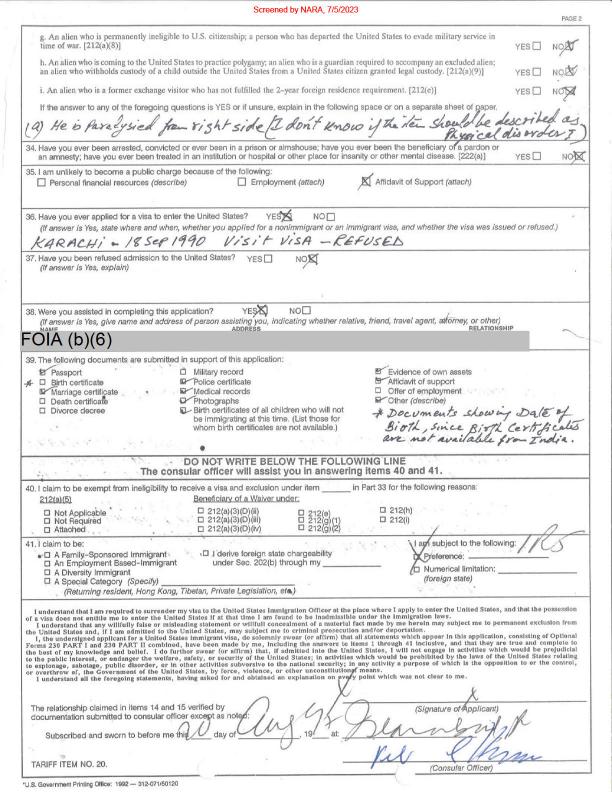 Screened by NARA, 7/5/2023
PAGE 2
g. An alien who is permanently ineligible to U.S. citizenship; a person who has departed the United States to evade military service in
time of war. [212(a)(8)] YES NO
h. An alien who is coming to the United States to practice polygamy; an alien who is a guardian required to accompany an excluded alien;
an alien who withholds custody of a child outside the United States from a United States citizen granted legal custody. [212(a)(9)] YES NO
i. An alien who is a former exchange visitor who has not fulfilled the 2-year foreign residence requirement. [212(e)] YES NO
If the answer to any of the foregoing questions is YES or if unsure, explain in the following space or on a separate sheet of paper.
(a) He is Paralysied from right side (I don't know if the item should be described as
Physical disorder)
34. Have you ever been arrested, convicted or ever been in a prison or almshouse; have you ever been the beneficiary of a pardon or
an amnesty; have you ever been treated in an institution or hospital or other place for insanity or other mental disease. [222(a)] YES NO
35. I am unlikely to become a public charge because of the following:
Personal financial resources (describe) Employment (attach) Affidavit of Support (attach)
36. Have you ever applied for a visa to enter the United States? YES NO
(If answer is Yes, state where and when, whether you applied for a nonimmigrant or an immigrant visa, and whether the visa was issued or refused.)
KARACHI - 18 SEP 1990 VISIT VISA - REFUSED
37. Have you been refused admission to the United States? YES NO
(If answer is Yes, explain)
38. Were you assisted in completing this application? YES NO
(If answer is Yes, give name and address of person assisting you, indicating whether relative, friend, travel agent, attorney, or other)
NAME ADDRESS RELATIONSHIP
FOIA (b)(6)
39. The following documents are submitted in support of this application:
Passport Military record Evidence of own assets
* Birth certificate Police certificate Affidavit of support
Marriage certificate Medical records Offer of employment
Death certificate Photographs Other (describe)
Divorce decree Birth certificates of all children who will
not be immigrating at this time. (List those for
whom birth certificates are not available.)
* Documents showing Date of
Birth, since Birth Certificates
are not available from India.
DO NOT WRITE BELOW THE FOLLOWING LINE
The consular officer will assist you in answering items 40 and 41.
40. I claim to be exempt from ineligibility to receive a visa and exclusion under item in Part 33 for the following reasons:
212(a)(5) Beneficiary of a Waiver under:
Not Applicable 212(a)(3)(D)(ii) 212(e) 212(h)
Not Required 212(a)(3)(D)(iii) 212(g)(1) 212(i)
Attached 212(a)(3)(D)(iv) 212(g)(2)
41. I claim to be: I am subject to the following:
A Family-Sponsored Immigrant I derive foreign state chargeability Preference: IR5
An Employment Based-Immigrant under Sec. 202(b) through my
A Diversity Immigrant Numerical limitation:
A Special Category (Specify) (foreign state)
(Returning resident, Hong Kong, Tibetan, Private Legislation, etc.)
I understand that I am required to surrender my visa to the United States Immigration Officer at the place where I apply to enter the United States, and that the possession
of a visa does not entitle me to enter the United States if at that time I am found to be inadmissible under the immigration laws.
I understand that any willfully false or misleading statement or willful concealment of a material fact made by me herein may subject me to permanent exclusion from
the United States and, if I am admitted to the United States, may subject me to criminal prosecution and/or deportation.
I, the undersigned applicant for a United States immigrant visa, do solemnly swear (or affirm) that all statements which appear in this application, consisting of Optional
Forms 230 PART I and 230 PART II combined, have been made by me, including the answers to items 1 through 41 inclusive, and that they are true and complete to
the best of my knowledge and belief. I do further swear (or affirm) that, if admitted into the United States, I will not engage in activities which would be prejudicial
to the public interest, or endanger the welfare, safety, or security of the United States; in activities which would be prohibited by the laws of the United States relating
to espionage, sabotage, public disorder, or in other activities subversive to the national security; in any activity a purpose of which is the opposition to or the control,
or overthrow of, the Government of the United States, by force, violence, or other unconstitutional means.
I understand all the foregoing statements, having asked for and obtained an explanation on every point which was not clear to me.
The relationship claimed in items 14 and 15 verified by
documentation submitted to consular officer except as noted:
(Signature of Applicant)
Subscribed and sworn to before me this 20 day of Aug, 19 at:
(Consular Officer)
TARIFF ITEM NO. 20.
*U.S. Government Printing Office: 1992 — 312-071/50120